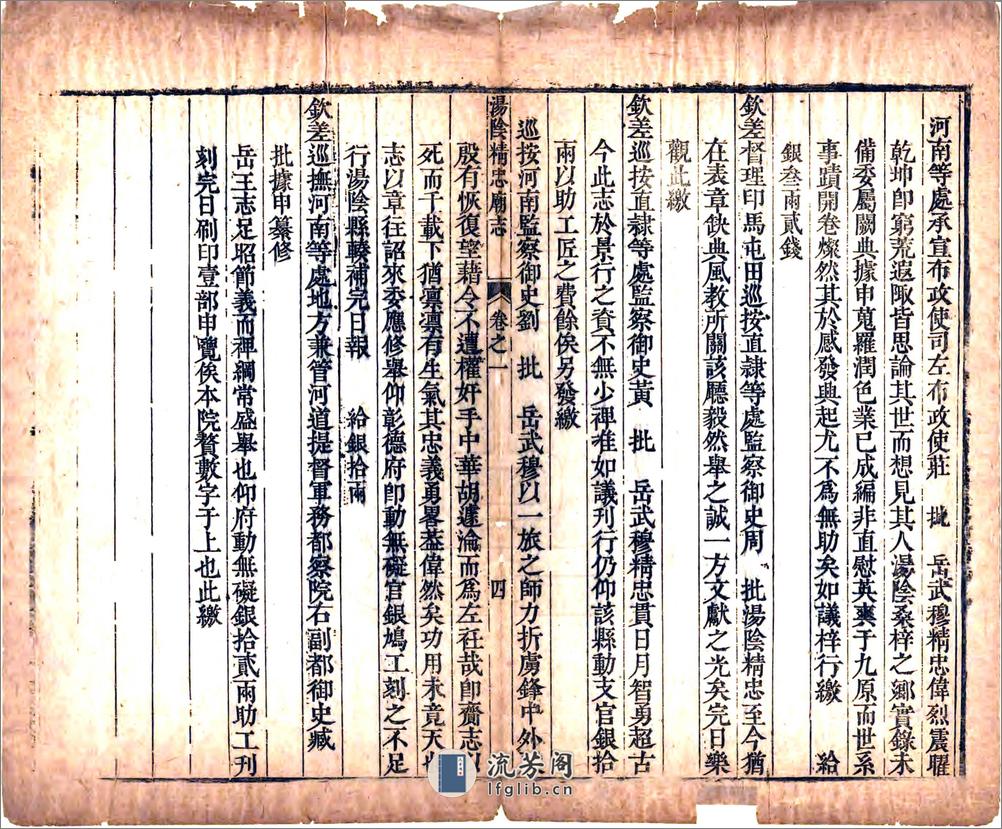 河南等處承宣布政使司左布政使莊　批　岳武穆精忠偉烈震耀
乾坤卽窮荒遐陬皆思論其世而想見其人湯陰桑梓之鄉實錄未
備委屬闕典據申蒐羅潤色業已成編非直慰英爽于九原而世系
事蹟開卷燦然其於感發興起尤不為無助矣如議梓行繳　給
銀叁兩貳錢
欽差督理印馬屯田巡按直隸等處監察御史周　批湯陰精忠至今猶
在表章缺典風教所關該廳毅然舉之誠一方文獻之光矣完日樂
觀此繳
欽差巡按直隸等處監察御史黃　批　岳武穆精忠貫日月智勇超古
今此志於景行之資不無少裨准如議刊行仍仰該縣動支官銀拾
兩以助工匠之費餘俟另發繳
巡按河南監察御史劉　批　岳武穆以一旅之師力折虜鋒中外
湯陰精忠廟志　卷之一　四
殷有恢復望藉令不遭權奸手中華胡遽淪而為左衽哉卽齎志
死而千載下猶凛凛有生氣其忠義勇畧蓋偉然矣功用未竟天
志以章往詔來委應修舉仰彰德府卽動無礙官銀鳩工刻之不足
行湯陰縣輳補完日報　給銀拾兩
欽差巡撫河南等處地方兼管河道提督軍務都察院右副都御史臧
批據申纂修
岳王志足昭節義而裨綱常盛舉也仰府動無礙銀拾貳兩助工刊
刻完日刷印壹部申覽俟本院贅數字于上也此繳
流芳阁
lfglib.cn